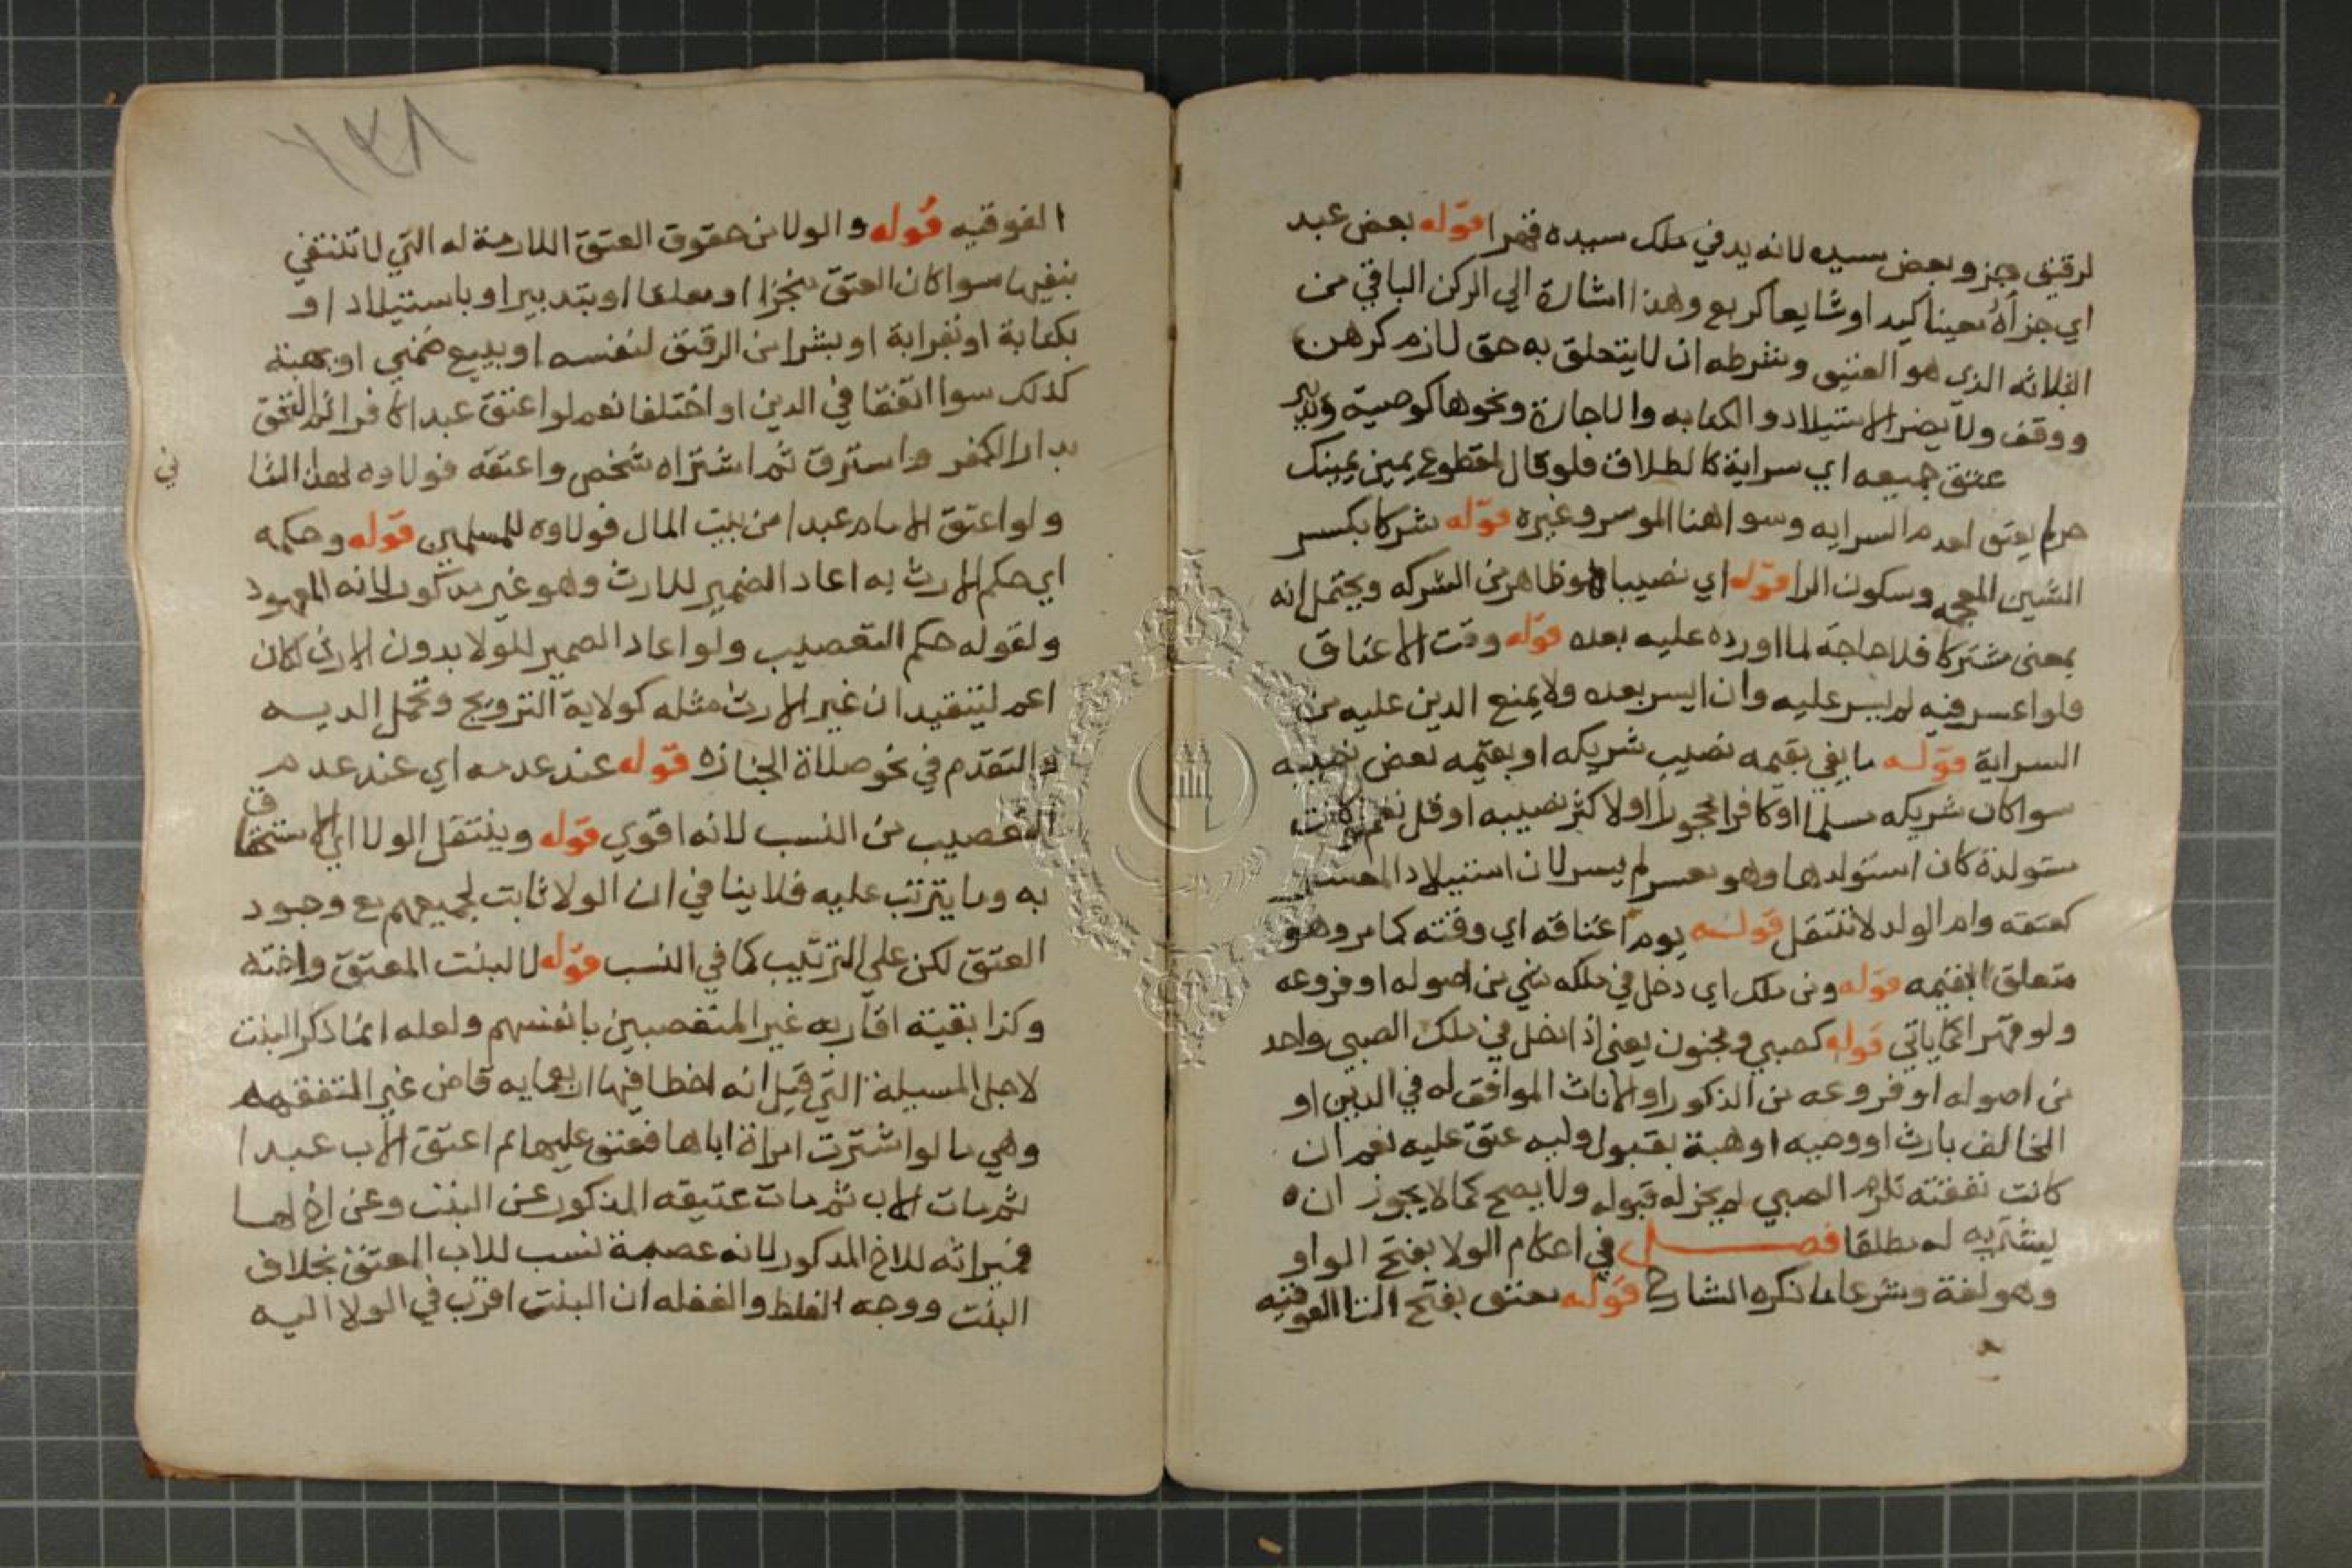 لرقيق جز وبعض سيده لانه يدفي ملك سيده قهرا قوله بعض عبد
اي جزأه معينا كيد او شايعا كربع وهذا اشارة الي الركن الباقي من
الثلاثه الذي هو العتيق وشرطه ان لا يتعلق به حق لازم كرهن
ووقف ولا يضر الاستيلاد والكتابه والاجارة ونحوها كوصية
عتق جميعه اي سراية كالطلاق فلو قال لمقطوع يمين يمينك
حر لم يعتق لعدم السرايه وسوا هنا الموسر وغيره قوله شركا بكسر
الشين المعجمه وسكون الرا قوله اي نصيبا هو ظاهر من الشركه ويحتمل انه
بمعنى مشتركا فلا حاجة لما اورده عليه بعده قوله وقت الاعتاق
فلو اعسر فيه لم يسر عليه وان ايسر بعده ولا يمنع الدين عليه من
السراية قوله ما يفي بقيمه نصيب شريكه او بقيمه بعض نصيبه
سوا كان شريكه مسلما او كافرا محجورا او لا كثر نصيبه او قل نعم لو كانت
مستولدة كان استولدها وهو معسر لم يسر لان استيلاد المعسر
كعتقه وام الولد لا تنتقل قوله يوم اعتاقه اي وقته كما مر وهو
متعلق بقيمه قوله ومن ملك اي دخل في ملكه شي من اصوله او فروعه
ولو قهرا كما ياتي قوله كصبي ومجنون يعني اذا دخل في ملك الصبي واحد
من اصوله او فروعه من الذكور او الاناث الموافق له في الدين او
المخالف بارث او وصيه او هبة بقبول وليه عتق عليه نعم ان
كانت نفقته تلزم الصبي لم يجز له قبوله ولا يصح كما لا يجوز ان
يشتريه له مطلقا فصل في احكام الولا بفتح الواو
وهو لغة وشرعا ما ذكره الشارح قوله معتق بفتح التا الفوقيه
١٣٨
الفوقيه قوله والولا من حقوق العتق اللازمة له التي لا تنتفي
بنفيها سوا كان العتق منجزا او معلقا او بتدبير او باستيلاد او
بكتابة او بقرابة او بشرا من الرقيق لنفسه او ببيع ضمني او بهبته
كذلك سوا اتفقا في الدين او اختلفا نعم لو اعتق عبدا كافرا ثم التحق
بدار الكفر واسترق ثم اشتراه شخص واعتقه فولاوه لهذا الثا
ني
ولو اعتق الامام عبدا من بيت المال فولاوه للمسلمين قوله وحكمه
اي حكم الارث به اعاد الضمير للارث وهو غير مذكور لانه المعهود
ولقوله حكم التعصيب ولو اعاد الضمير للولا بدون الارث لكان
اعم ليفيد ان غير الارث مثله كولاية التزويج وتحمل الديه
والتقدم في نحو صلاة الجنازه قوله عند عدمه اي عند عدم
التعصيب من النسب لانه اقوي قوله وينتقل الولا اي الاستحقاق
به وما يترتب عليه فلا ينافي ان الولا ثابت لجميعهم مع وجود
العتق لكن علي الترتيب كما في النسب قوله لا لبنت المعتق واخته
وكذا بقية اقاربه غير المتعصبين بانفسهم ولعله انما ذكر البنت
لاجل المسيلة التي قيل انه اخطا فيها اربعمايه قاض غير المتفقهه
وهي ما لو اشترت امراة اباها فعتق عليها ثم اعتق الاب عبدا
ثم مات الاب ثم مات عتيقه المذكور عن البنت وعن اخ لها
فميراثه للاخ المذكور لانه عصبة نسب للاب المعتق بخلاف
البنت ووجه الغلط والغفله ان البنت اقرب في الولا اليه